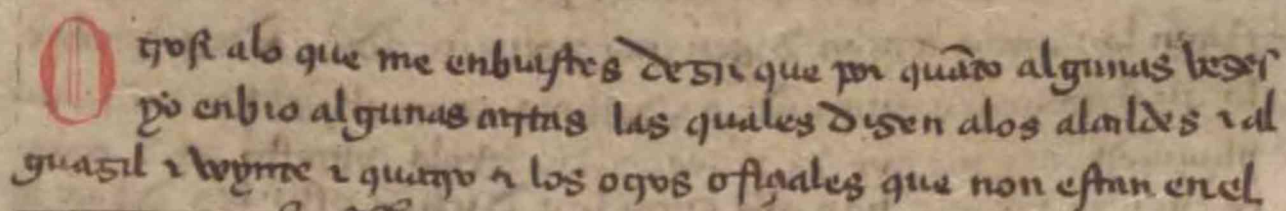 Otrosi alo que me enbiastes dezir que por quanto algunas vezes
yo enbio algunas cartas las quales dizen alos alcaldes τ al
guazil τ veynte τ quatro τ los otros ofiçiales que non estan enel